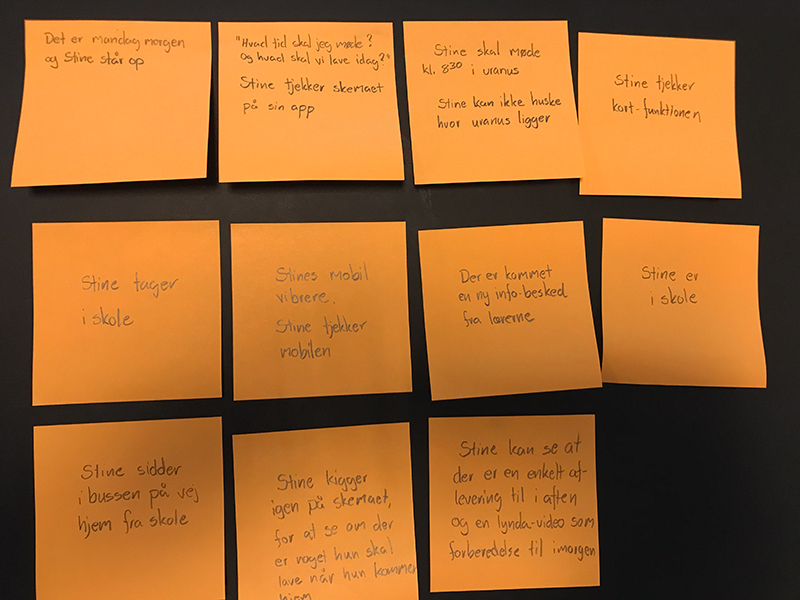 Det er mandag morgen
og Stine står op
"Hvad tid skal jeg møde?
og hvad skal vi lave idag?"
Stine tjekker skemaet
på sin app
Stine skal møde
kl. 8³⁰ i uranus
Stine kan ikke huske
hvor uranus ligger
Stine tjekker
kort-funktionen
Stine tager
i skole
Stines mobil
vibrere.
Stine tjekker
mobilen
Der er kommet
en ny info-besked
fra lærerne
Stine er
i skole
Stine sidder
i bussen på vej
hjem fra skole
Stine kigger
igen på skemaet,
for at se om der
er noget hun skal
lave når hun kommer
hjem
Stine kan se at
der er en enkelt af-
levering til i aften
og en lynda-video som
forberedelse til imorgen